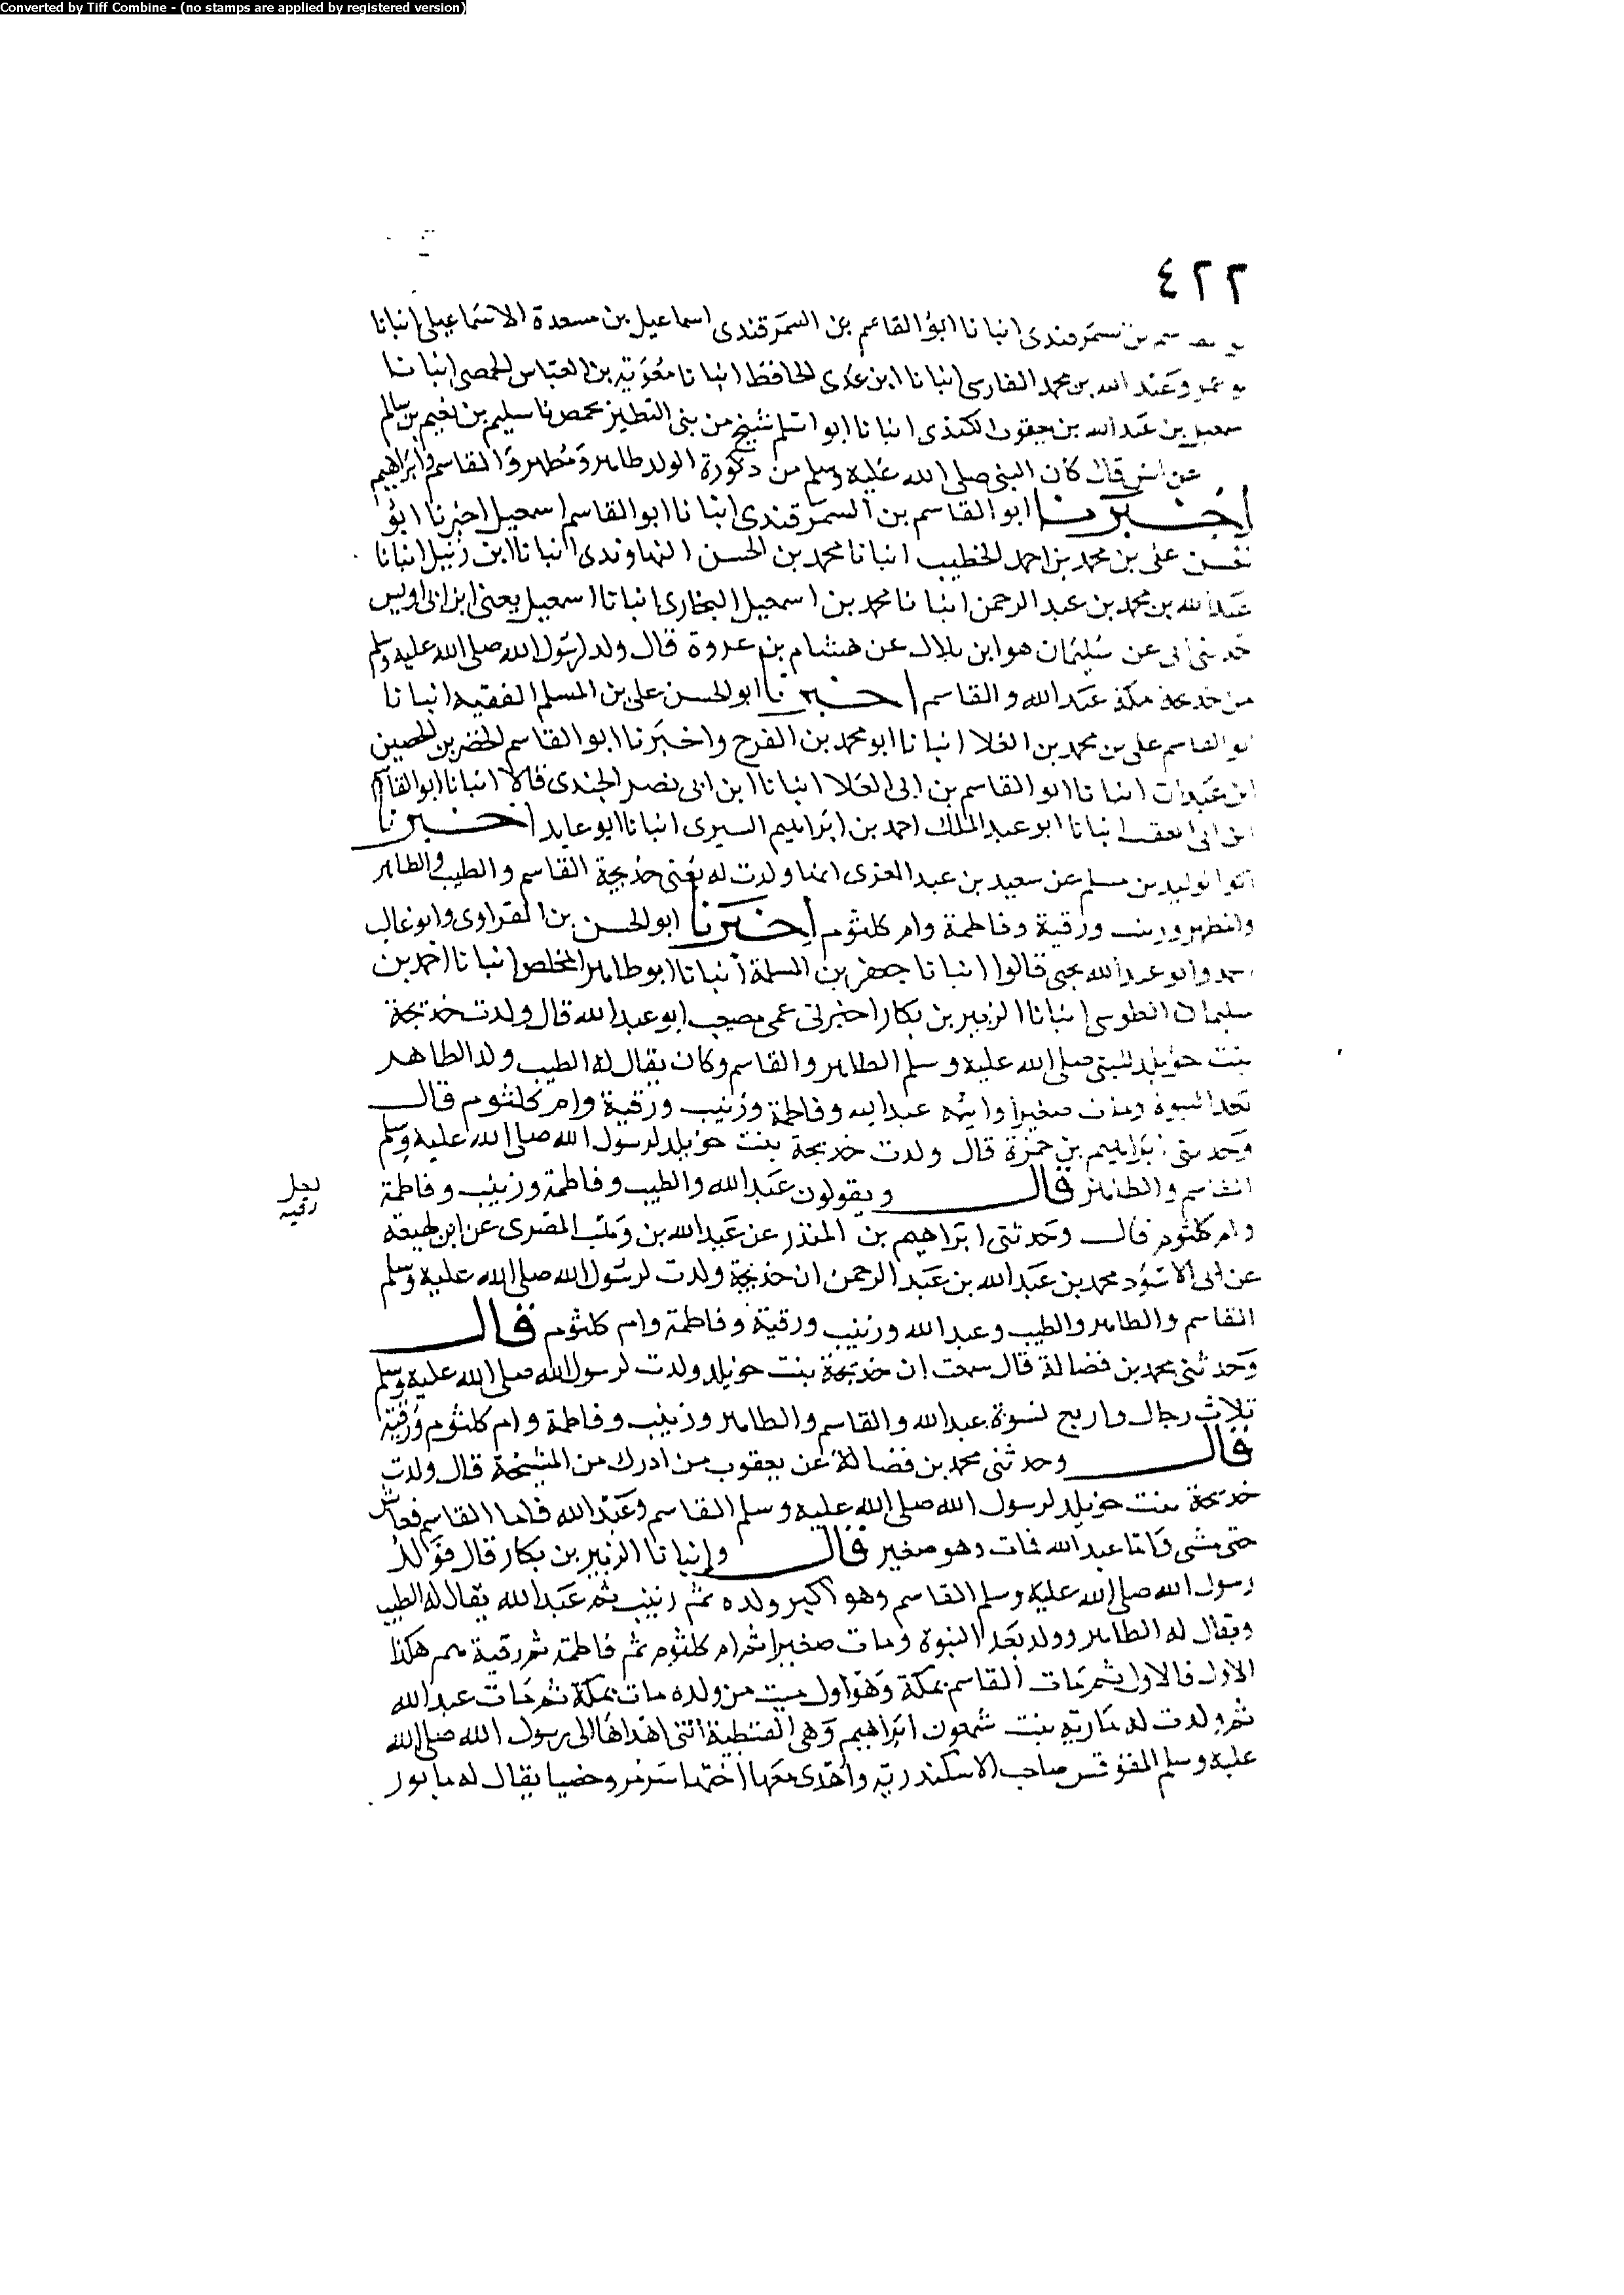 Converted by Tiff Combine - (no stamps are applied by registered version)
٤٢٢
انبانا ابو القاسم بن السمرقندى اسماعيل بن مسعدة الاسماعيلى انبانا
وعبد الله بن محمد الفارسى انبانا ابن عدى الحافظ انبانا معوية بن العباس الحمصى انبانا
بن عبد الله بن يعقوب الكندى انبانا ابو اسلم شيخ من بنى بحمص نا سليم بن بن سالم
عن انس قال كان النبى صلى الله عليه وسلم من ذكورة الولد طاهر ومطهر والقاسم وابراهيم
اخبرنا ابو القاسم بن السمرقندى انبانا ابو القاسم اسمعيل اخبرنا ابو
على بن محمد بن احمد الخطيب انبانا محمد بن الحسن النهاوندى انبانا ابن زنبيل انبانا
عبد الله بن محمد بن عبد الرحمن انبانا محمد بن اسمعيل البخارى انبانا اسمعيل يعنى ابن ابى اويس
حدثنى عن سليمان هو ابن بلال عن هشام بن عروة قال ولد لرسول الله صلى الله عليه وسلم
من خديجة بمكة عبد الله والقاسم اخبرنا ابو الحسن على بن المسلم الفقيه انبانا
ابو القاسم على بن محمد بن العلا انبانا ابو محمد بن الفرح واخبرنا ابو القاسم الخضر بن الحصين
ابن عبدان انبانا ابو القاسم بن ابى العلا انبانا ابن ابى نصر الجندى قالا انبانا ابو القاسم
ابن ابى العقب انبانا ابو عبد الملك احمد بن ابراهيم انبانا ابو عايد اخبرنا
الوليد بن مسلم عن سعيد بن عبد العزى انها ولدت له يعنى خديجة القاسم والطيب والطاهر
والمطهر وزينب ورقية وفاطمة وام كلثوم اخبرنا ابو الحسن بن الفراوى وابو غالب
احمد وابو عبد الله يحيى قالوا انبانا جعفر بن المسلمة انبانا ابو طاهر المخلص انبانا احمد بن
سليمان الطوسى انبانا الزبير بن بكار اخبرنى عمى مصعب ابو عبد الله قال ولدت خديجة
بنت خويلد للنبى صلى الله عليه وسلم الطاهر والقاسم وكان يقال له الطيب ولد الطاهر
بعد النبوة ومات صغيرا واسمه عبد الله وفاطمة وزينب ورقية وام كلثوم قال
وحدثنى ابراهيم بن حمزة قال ولدت خديجة بنت خويلد لرسول الله صلى الله عليه وسلم
القاسم والطاهر قال ويقولون عبد الله والطيب وفاطمة وزينب وفاطمة
لعل
رقيه
وام كلثوم قال وحدثنى ابراهيم بن المنذر عن عبد الله بن وهب المصرى عن ابن لهيعة
عن ابى الاسود محمد بن عبد الله بن عبد الرحمن ان خديجة ولدت لرسول الله صلى الله عليه وسلم
القاسم والطاهر والطيب وعبد الله وزينب ورقية وفاطمة وام كلثوم قال
وحدثنى محمد بن فضالة قال سمعت ان خديجة بنت خويلد ولدت لرسول الله صلى الله عليه وسلم
ثلاث رجال واربع نسوة عبد الله والقاسم والطاهر وزينب وفاطمة وام كلثوم ورقية
قال وحدثنى محمد بن فضالة عن يعقوب من ادرك من المشيخة قال ولدت
خديجة بنت خويلد لرسول الله صلى الله عليه وسلم القاسم وعبد الله فاما القاسم فعاش
حتى مشى واما عبد الله فمات وهو صغير قال وانبانا الزبير بن بكار قال فولد
رسول الله صلى الله عليه وسلم القاسم وهو اكبر ولده ثم زينب ثم عبد الله يقال له الطيب
ويقال له الطاهر وولد بعد النبوة ومات صغيرا ثم ام كلثوم ثم فاطمة ثم رقية هم هكذا
الاول فالاول ثم مات القاسم بمكة وهو اول ميت من ولده مات بمكة ثم مات عبد الله
ثم ولدت له مارية بنت شمعون ابراهيم وهى القبطية التى اهداها الى رسول الله صلى الله
عليه وسلم المقوقس صاحب الاسكندرية واهدى معها اختها سيرين وخصيا يقال له مابور